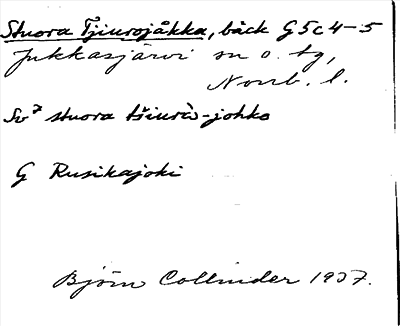 Stuora Tjiurojåkka, bäck G5c4-5
Jukkasjärvi sn o. tg,
Norrb. l.
Sv⁷ stuora tšiurò-johko
G Rusikajoki
Björn Collinder 1937.